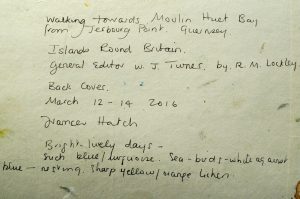 Walking towards Moulin Huet Bay
from Jerbourg Point. Guernsey.
Islands Round Britain.
General Editor W. J. Turner. by. R. M. Lockley.
Back Cover.
March 12-14 2016
Frances Hatch
Bright-lively days -
such blue/turquoise. Sea-birds-white against
blue - nesting. Sharp yellow/orange lichen.